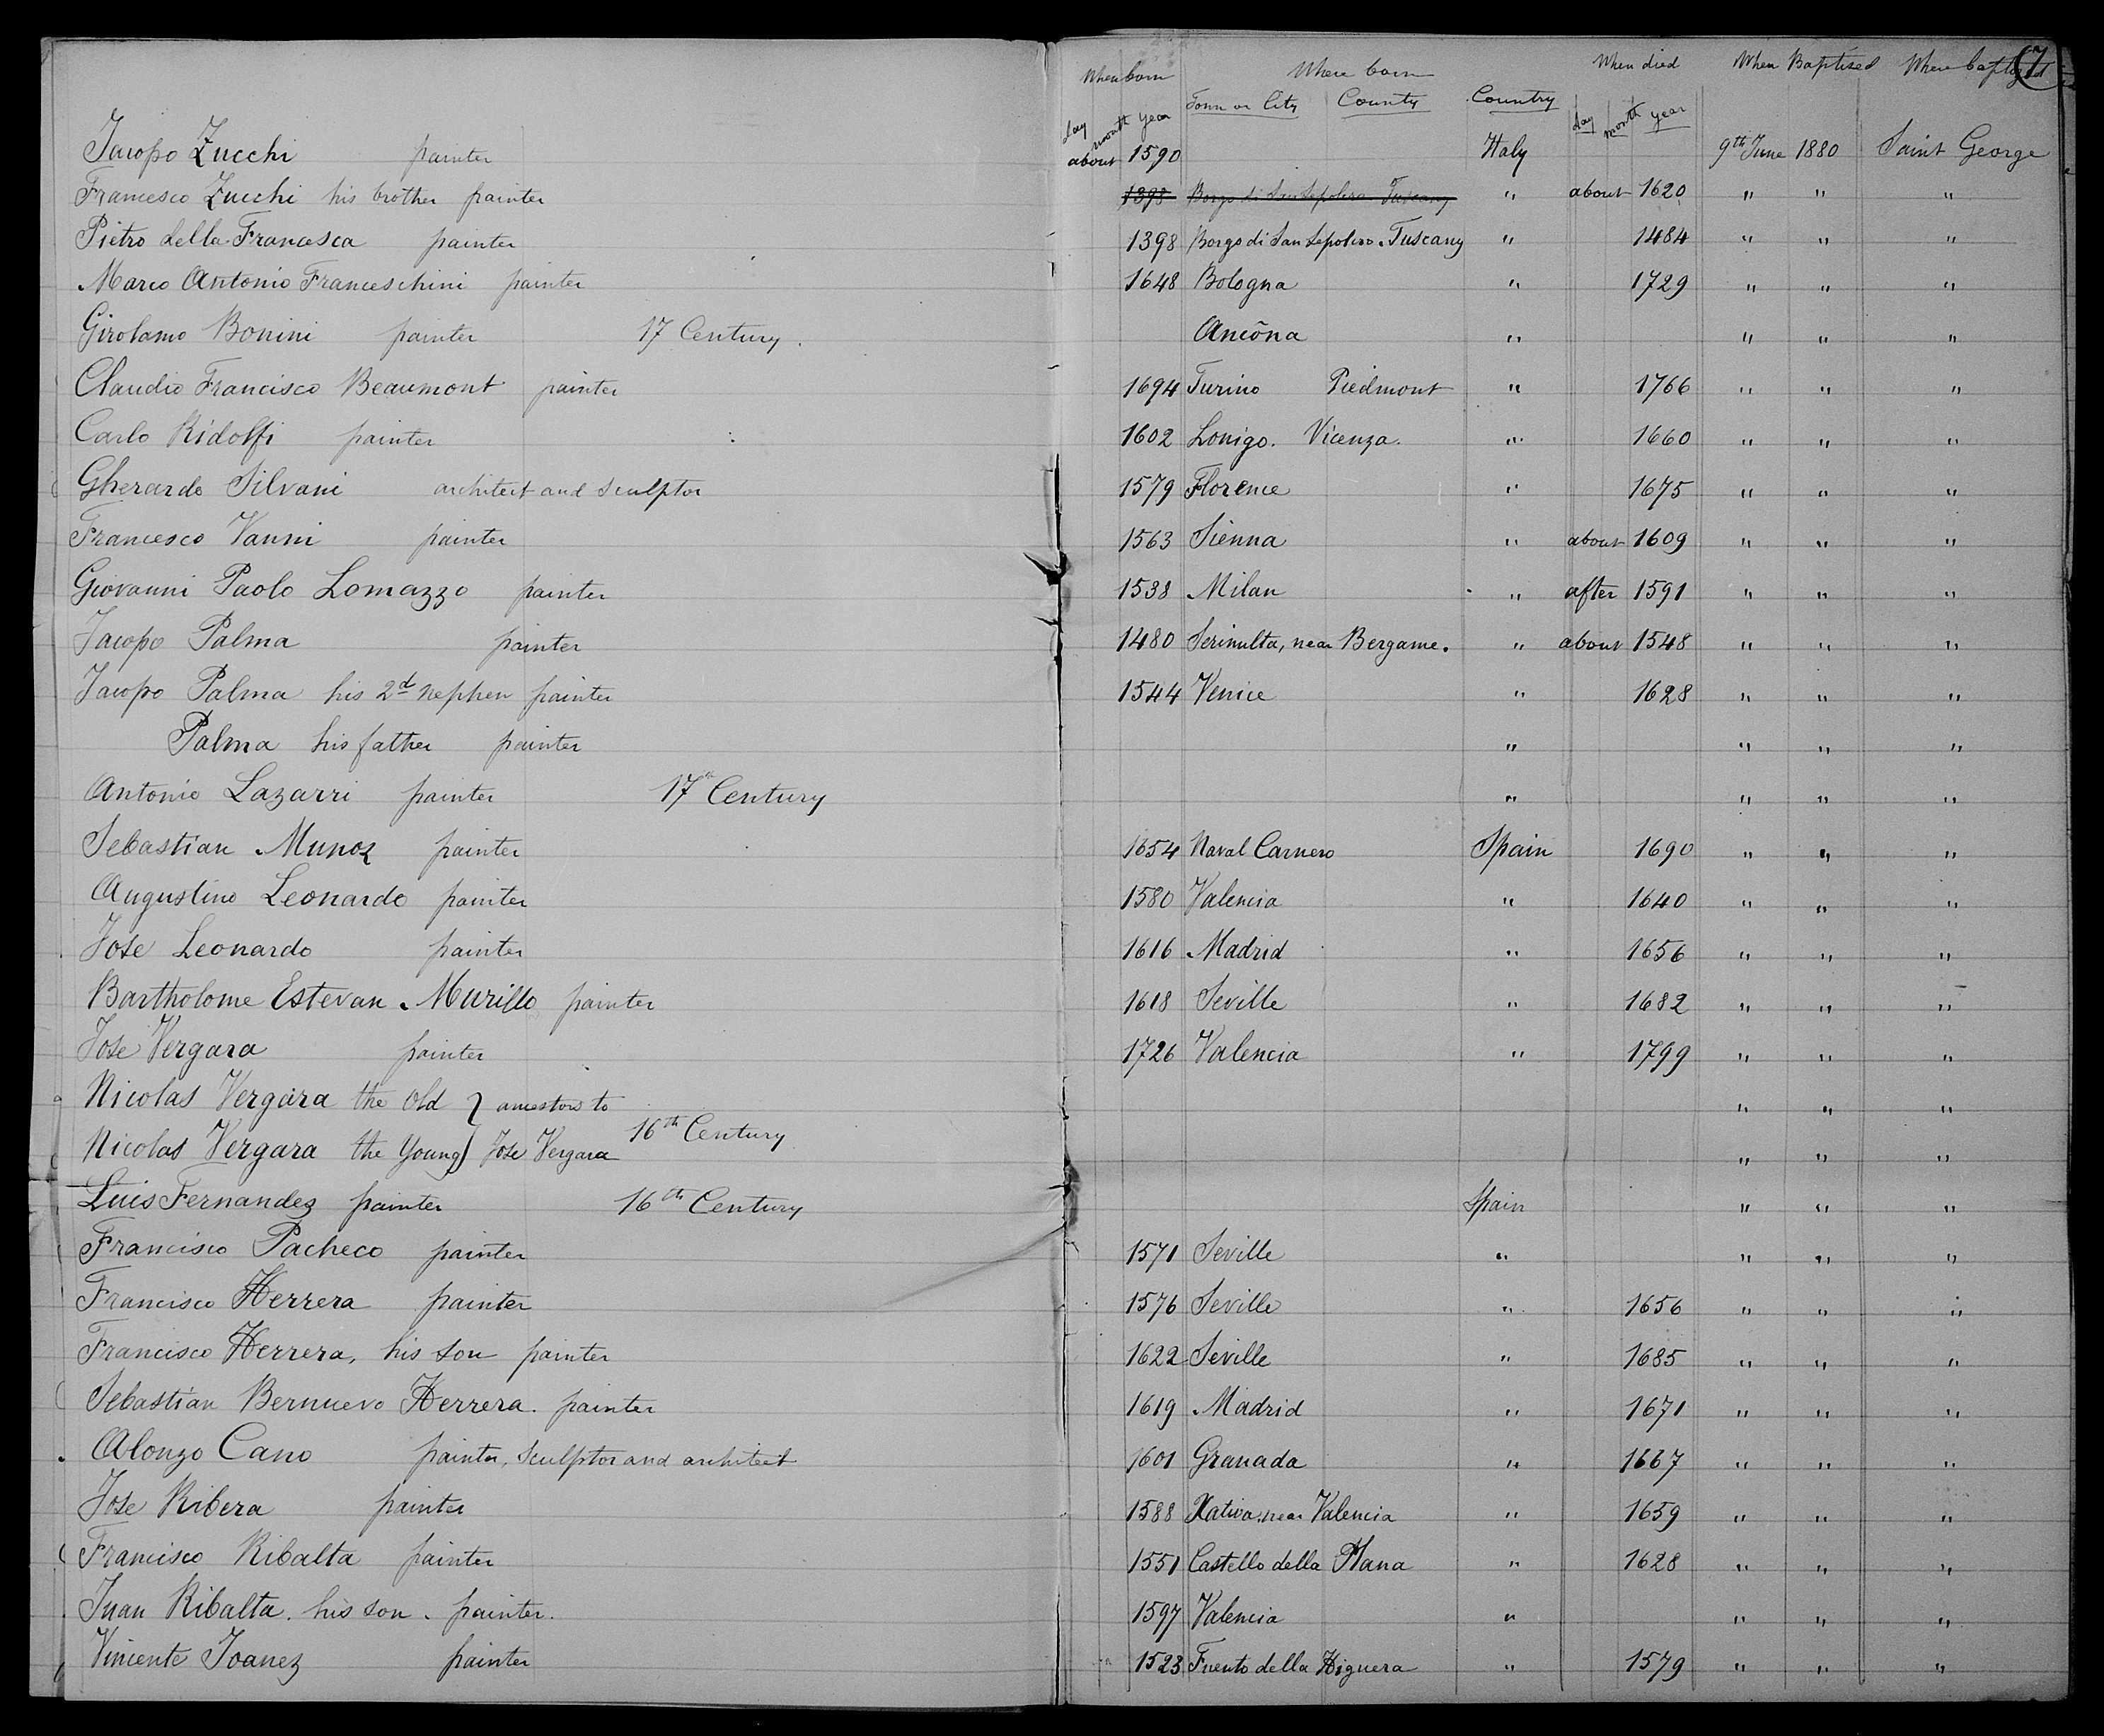 When born Where born When died When Baptised When baptized (7
day month year Town or City County Country day month year
Jacopo Zucchi painter about 1590 Italy 9th June 1880 Saint George
Francesco Zucchi his brother painter 1398 Borgo di San Sepolcro Tuscany " about 1620 " " "
Pietro della Francesca painter 1398 Borgo di San Sepolcro. Tuscany " 1484 " " "
Marco Antonio Franceschini painter 1648 Bologna " 1729 " " "
Girolamo Bonini painter 17 Century. Ancōna " " " "
Claudio Francisco Beaumont painter 1694 Turino Piedmont " 1766 " " "
Carlo Ridolfi painter 1602 Lonigo. Vicenza. " 1660 " " "
Gherardo Silvani architect and sculptor 1579 Florence " 1675 " " "
Francesco Vanni painter 1563 Sienna " about 1609 " " "
Giovanni Paolo Lomazzo painter 1538 Milan " after 1591 " " "
Jacopo Palma painter 1480 Serinulta, near Bergame. " about 1548 " " "
Jacopo Palma his 2d nephew painter 1544 Venice " 1628 " " "
Palma his father painter " " " "
Antonio Lazarri painter 17th Century " " " "
Sebastian Munoz painter 1654 Naval Carnero Spain 1690 " " "
Augustino Leonardo painter 1580 Valencia " 1640 " " "
Jose Leonardo painter 1616 Madrid " 1656 " " "
Bartholome Estevan Murillo painter 1618 Seville " 1682 " " "
Jose Vergara painter 1726 Valencia " 1799 " " "
Nicolas Vergara the Old } ancestors to " " "
Nicolas Vergara the Young } Jose Vergara 16th Century " " "
Luis Fernandez painter 16th Century Spain " " "
Francisco Pacheco painter 1571 Seville " " " "
Francisco Herrera painter 1576 Seville " 1656 " " "
Francisco Herrera, his son painter 1622 Seville " 1685 " " "
Sebastian Bernuevo Herrera. painter 1619 Madrid " 1671 " " "
Alonzo Cano painter, sculptor and architect 1601 Granada " 1667 " " "
Jose Ribera painter 1588 Xativa, near Valencia " 1659 " " "
Francisco Ribalta painter 1551 Castello della Plana " 1628 " " "
Juan Ribalta. his son. painter. 1597 Valencia " " " "
Vincente Joanez painter 1523 Fuento della Higuera " 1579 " " "